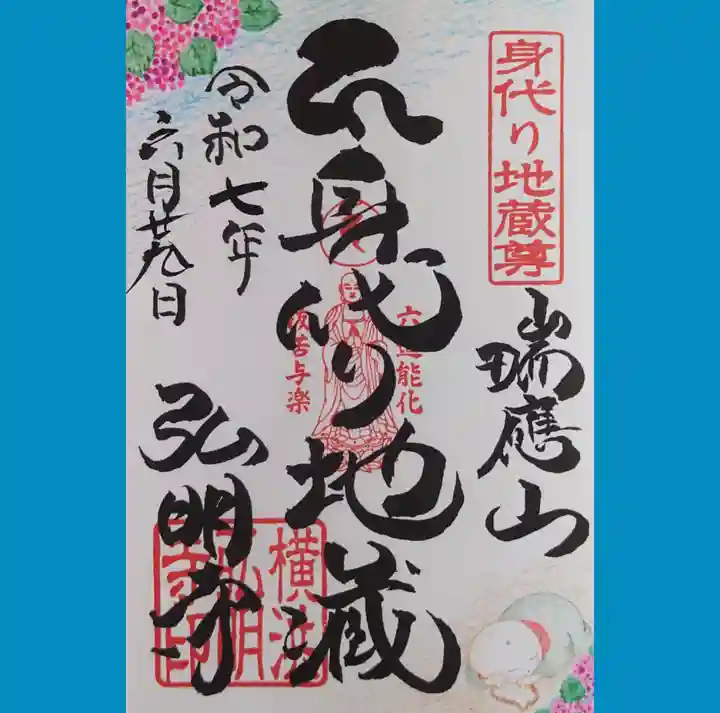 身代り地蔵尊
瑞應山
身代り地蔵
六道能化
抜苦与楽
弘明寺
横浜弘明寺印
令和七年
六月廿九日